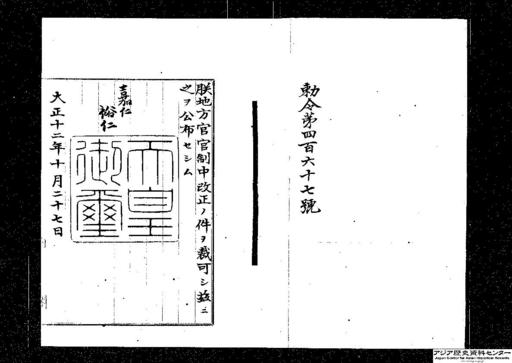 勅令第四百六十七號
朕地方官官制中改正ノ件ヲ裁可シ玆ニ
之ヲ公布セシム
嘉仁
裕仁
天皇
御璽
大正十二年十月二十七日
アジア歴史資料センター
Japan Center for Asian Historical Records